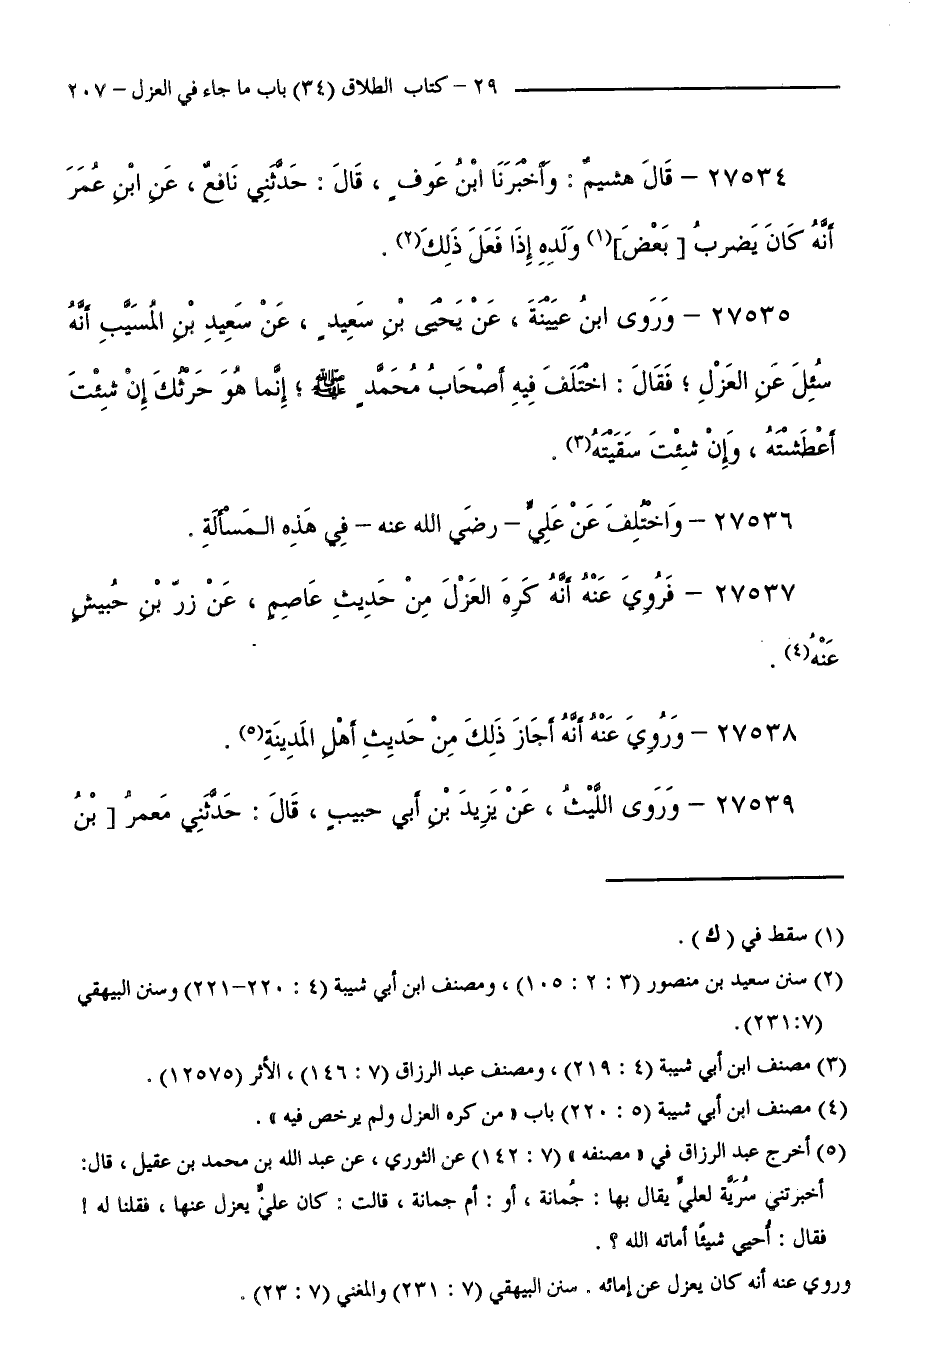 ٢٩ – كتاب الطلاق (٣٤) باب ما جاء في العزل – ٢٠٧
٢٧٥٣٤ – قَالَ هشيمٌ : وَأَخْبَرَنَا ابْنُ عَوفٍ ، قَالَ : حَدَّثَنِي نَافعٌ ، عَنِ ابْنِ عُمَرَ
أَنَّهُ كَانَ يَضربُ [ بَعْضَ](١) وَلَدِهِ إِذَا فَعَلَ ذَلِكَ(٢) .
٢٧٥٣٥ – وَرَوى ابنُ عيَيْنَةَ ، عَنْ يَحْيَى بْنِ سَعِيدٍ ، عَنْ سَعِيدِ بْنِ المُسَيَّبِ أَنَّهُ
سُئِلَ عَنِ العَزْلِ ؛ فَقَالَ : اخْتَلَفَ فِيهِ أَصْحَابُ مُحَمَّدٍ ﷺ ؛ إِنَّما هُوَ حَرْثُكَ إِنْ شِئْتَ
أَعْطَشْتَهُ ، وَإِنْ شِئْتَ سَقَيْتَهُ(٣) .
٢٧٥٣٦ – وَاخْتُلِفَ عَنْ عَلِيٍّ – رضَي الله عنه – فِي هَذِهِ الـمَسْأَلَةِ .
٢٧٥٣٧ – فَرُوِيَ عَنْهُ أَنَّهُ كَرِهَ العَزْلَ مِنْ حَدِيثِ عَاصِمٍ ، عَنْ زرِّ بْنِ حُبيشٍ
عَنْهُ(٤) .
٢٧٥٣٨ – وَرُوِيَ عَنْهُ أَنَّهُ أَجَازَ ذَلِكَ مِنْ حَدِيثِ أَهْلِ المَدِينَةِ(٥) .
٢٧٥٣٩ – وَرَوَى اللَّيْثُ ، عَنْ يَزِيدَ بْنِ أَبي حبيبٍ ، قَالَ : حَدَّثَنِي مَعمرُ [ بْنُ
(١) سقط في ( ك ) .
(٢) سنن سعيد بن منصور (٣ : ٢ : ١٠٥) ، ومصنف ابن أبي شيبة (٤ : ٢٢٠–٢٢١) وسنن البيهقي
(٧:٢٣١).
(٣) مصنف ابن أبي شيبة (٤ : ٢١٩) ، ومصنف عبد الرزاق (٧ : ١٤٦) ، الأثر (١٢٥٧٥) .
(٤) مصنف ابن أبي شيبة (٥ : ٢٢٠) باب « من كره العزل ولم يرخص فيه » .
(٥) أخرج عبد الرزاق في « مصنفه » (٧ : ١٤٢) عن الثوري ، عن عبد الله بن محمد بن عقيل ، قال:
أخبرتني سُرَيَّة لعليٍّ يقال بها : جُمانة ، أو : أم جمانة ، قالت : كان عليٌّ يعزل عنها ، فقلنا له !
فقال : أُحيي شيئًا أماته الله ؟ .
وروي عنه أنه كان يعزل عن إمائه . سنن البيهقي (٧ : ٢٣١) والمغني (٧ : ٢٣) .